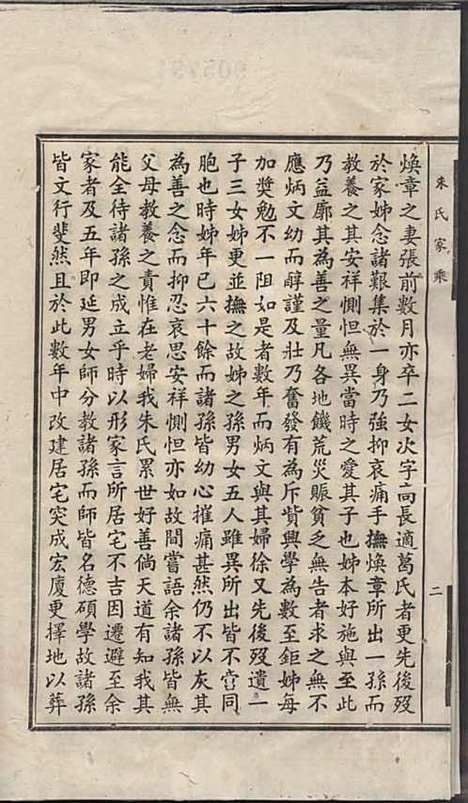 朱氏家乘
二
煥章之妻張前數月亦卒二女次字高長適葛氏者更先後歿
於家姊念諸艱集於一身乃強抑哀痛手撫煥章所出一孫而
教養之其安祥惻怛無異當時之愛其子也姊本好施與至此
乃益廓其為善之量凡各地饑荒災賑貧乏無告者求之無不
應炳文幼而醇謹及壯乃奮發有為斥貲興學為數至鉅姊每
加獎勉不一阻如是者數年而炳文與其婦徐又先後歿遺一
子三女姊更並撫之故姊之孫男女五人雖異所出皆不啻同
胞也時姊年已六十餘而諸孫皆幼心摧痛甚然仍不以灰其
為善之念而抑忍哀思安祥惻怛亦如故間嘗語余諸孫皆無
父母教養之責惟在老婦我朱氏累世好善倘天道有知我其
能全待諸孫之成立乎時以形家言所居宅不吉因遷避至余
家者及五年即延男女師分教諸孫而師皆名德碩學故諸孫
皆文行斐然且於此數年中改建居宅突成宏廈更擇地以葬